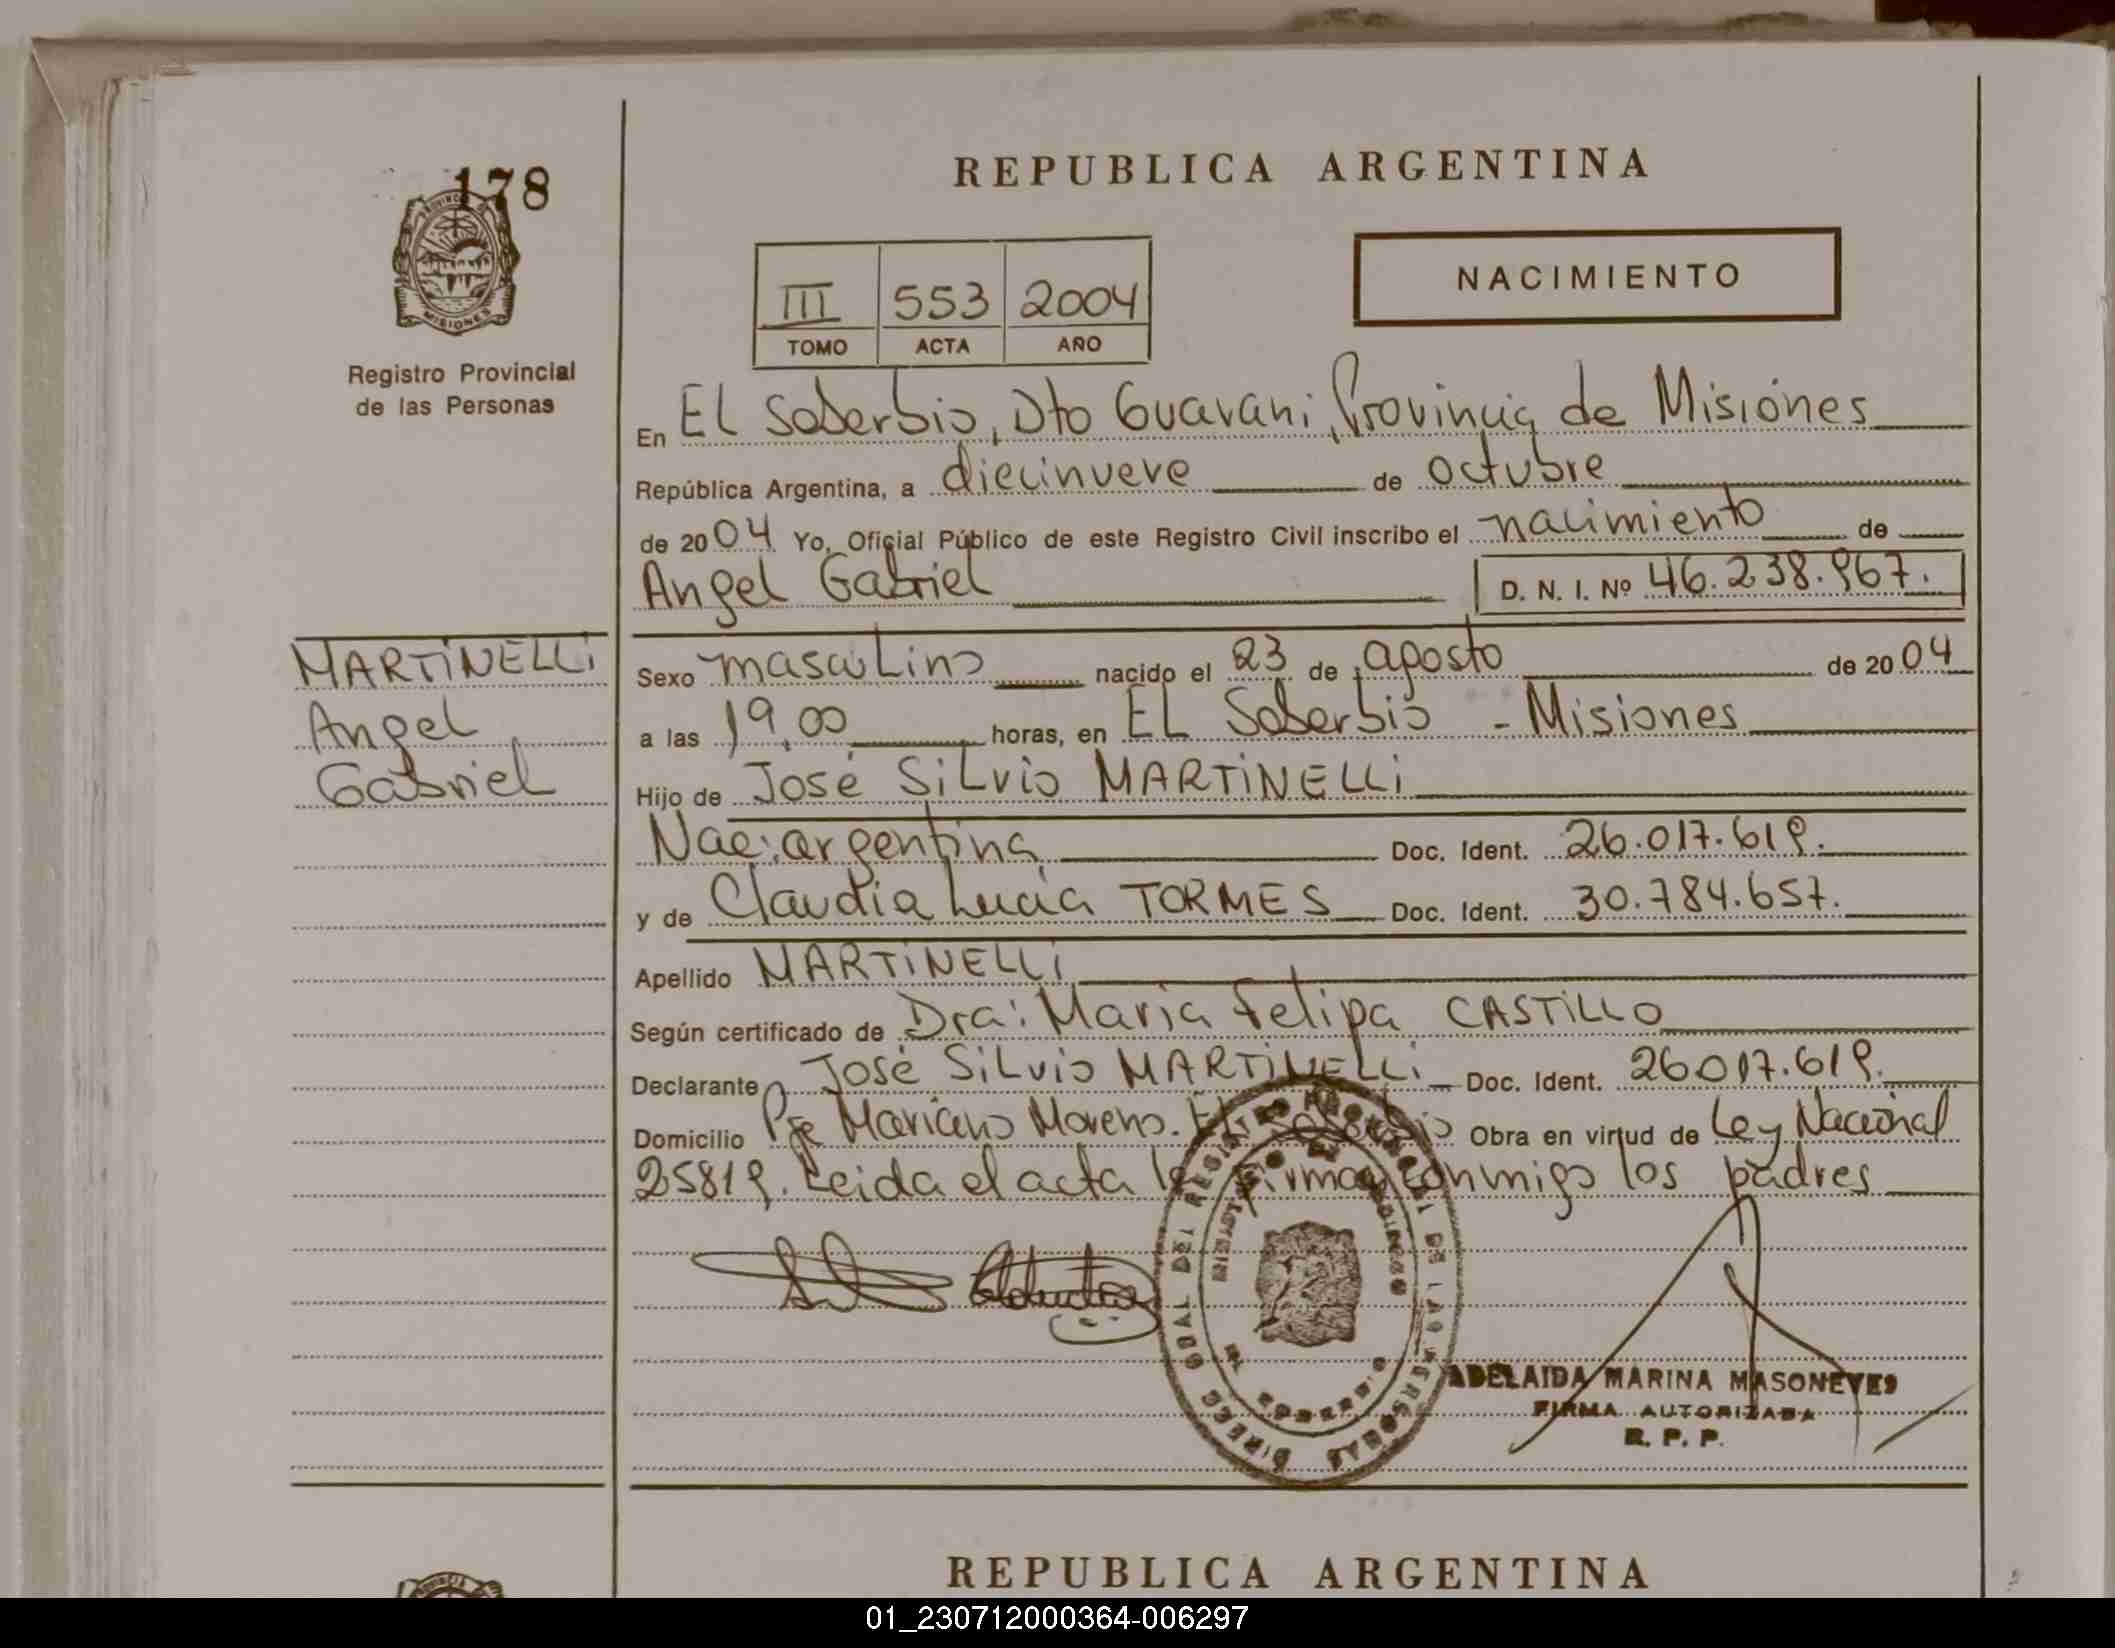 178
PROVINCIA DE
MISIONES
Registro Provincial
de las Personas
REPUBLICA ARGENTINA
NACIMIENTO
III 553 2004
TOMO ACTA AÑO
En El Soberbio, Dto Guarani, Provincia de Misiones
República Argentina, a diecinueve de octubre
de 2004 Yo, Oficial Público de este Registro Civil inscribo el nacimiento de
Angel Gabriel D. N. I. Nº 46.238.967.
MARTINELLI
Angel
Gabriel
Sexo masculino nacido el 23 de agosto de 2004
a las 19,00 horas, en EL Soberbio - Misiones
Hijo de José Silvio MARTINELLI
Nac: argentina Doc. Ident. 26.017.619.
y de Claudia Lucia TORMES Doc. Ident. 30.784.657.
Apellido MARTINELLI
Según certificado de Dra: Maria Felipa CASTILLO
Declarante José Silvio MARTINELLI Doc. Ident. 26.017.619.
Domicilio Pje Mariano Moreno. El Soberbio Obra en virtud de Ley Nacional
25819. Leida el acta la firman conmigo los padres
DIREC GRAL DEL REGISTRO PROVINCIAL DE LAS PERSONAS
MINISTERIO DE GOBIERNO
ADELAIDA MARINA MASONEVES
FIRMA AUTORIZADA
R. P. P.
REPUBLICA ARGENTINA
01_230712000364-006297